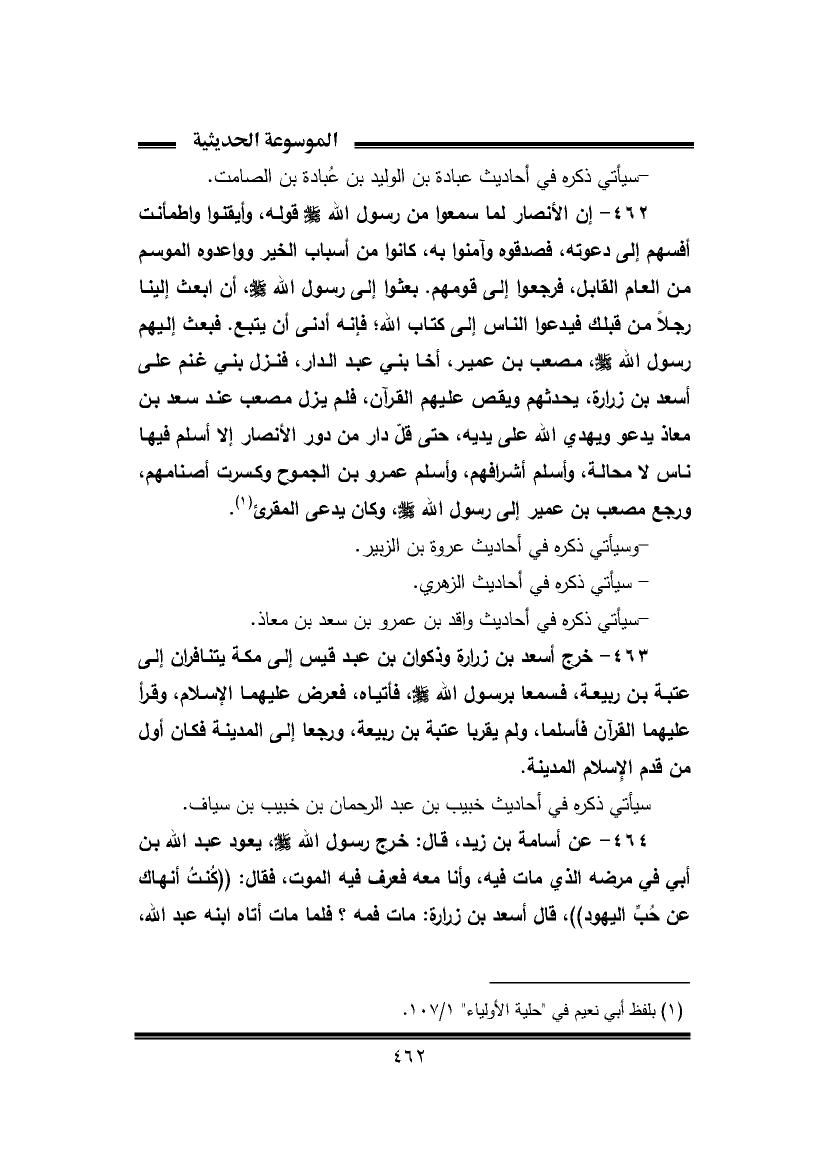 الموسوعة الحديثية
-سيأتي ذكره في أحاديث عبادة بن الوليد بن عُبادة بن الصامت.
٤٦٢- إن الأنصار لما سمعوا من رسول الله ﷺ قوله، وأيقنوا واطمأنت
أفسهم إلى دعوته، فصدقوه وآمنوا به، كانوا من أسباب الخير وواعدوه الموسم
من العام القابل، فرجعوا إلى قومهم. بعثوا إلى رسول الله ﷺ، أن ابعث إلينا
رجلاً من قبلك فيدعوا الناس إلى كتاب الله؛ فإنه أدنى أن يتبع. فبعث إليهم
رسول الله ﷺ، مصعب بن عمير، أخا بني عبد الدار، فنزل بني غنم على
أسعد بن زرارة، يحدثهم ويقص عليهم القرآن، فلم يزل مصعب عند سعد بن
معاذ يدعو ويهدي الله على يديه، حتى قلّ دار من دور الأنصار إلا أسلم فيها
ناس لا محالة، وأسلم أشرافهم، وأسلم عمرو بن الجموح وكسرت أصنامهم،
ورجع مصعب بن عمير إلى رسول الله ﷺ، وكان يدعى المقرئ(١).
-وسيأتي ذكره في أحاديث عروة بن الزبير.
- سيأتي ذكره في أحاديث الزهري.
-سيأتي ذكره في أحاديث واقد بن عمرو بن سعد بن معاذ.
٤٦٣- خرج أسعد بن زرارة وذكوان بن عبد قيس إلى مكة يتنافران إلى
عتبة بن ربيعة، فسمعا برسول الله ﷺ، فأتياه، فعرض عليهما الإسلام، وقرأ
عليهما القرآن فأسلما، ولم يقربا عتبة بن ربيعة، ورجعا إلى المدينة فكان أول
من قدم الإسلام المدينة.
سيأتي ذكره في أحاديث خبيب بن عبد الرحمان بن خبيب بن سياف.
٤٦٤- عن أسامة بن زيد، قال: خرج رسول الله ﷺ، يعود عبد الله بن
أبي في مرضه الذي مات فيه، وأنا معه فعرف فيه الموت، فقال: ((كُنتُ أنهاك
عن حُبِّ اليهود))، قال أسعد بن زرارة: مات فمه ؟ فلما مات أتاه ابنه عبد الله،
(١) بلفظ أبي نعيم في "حلية الأولياء" ١٠٧/١.
٤٦٢